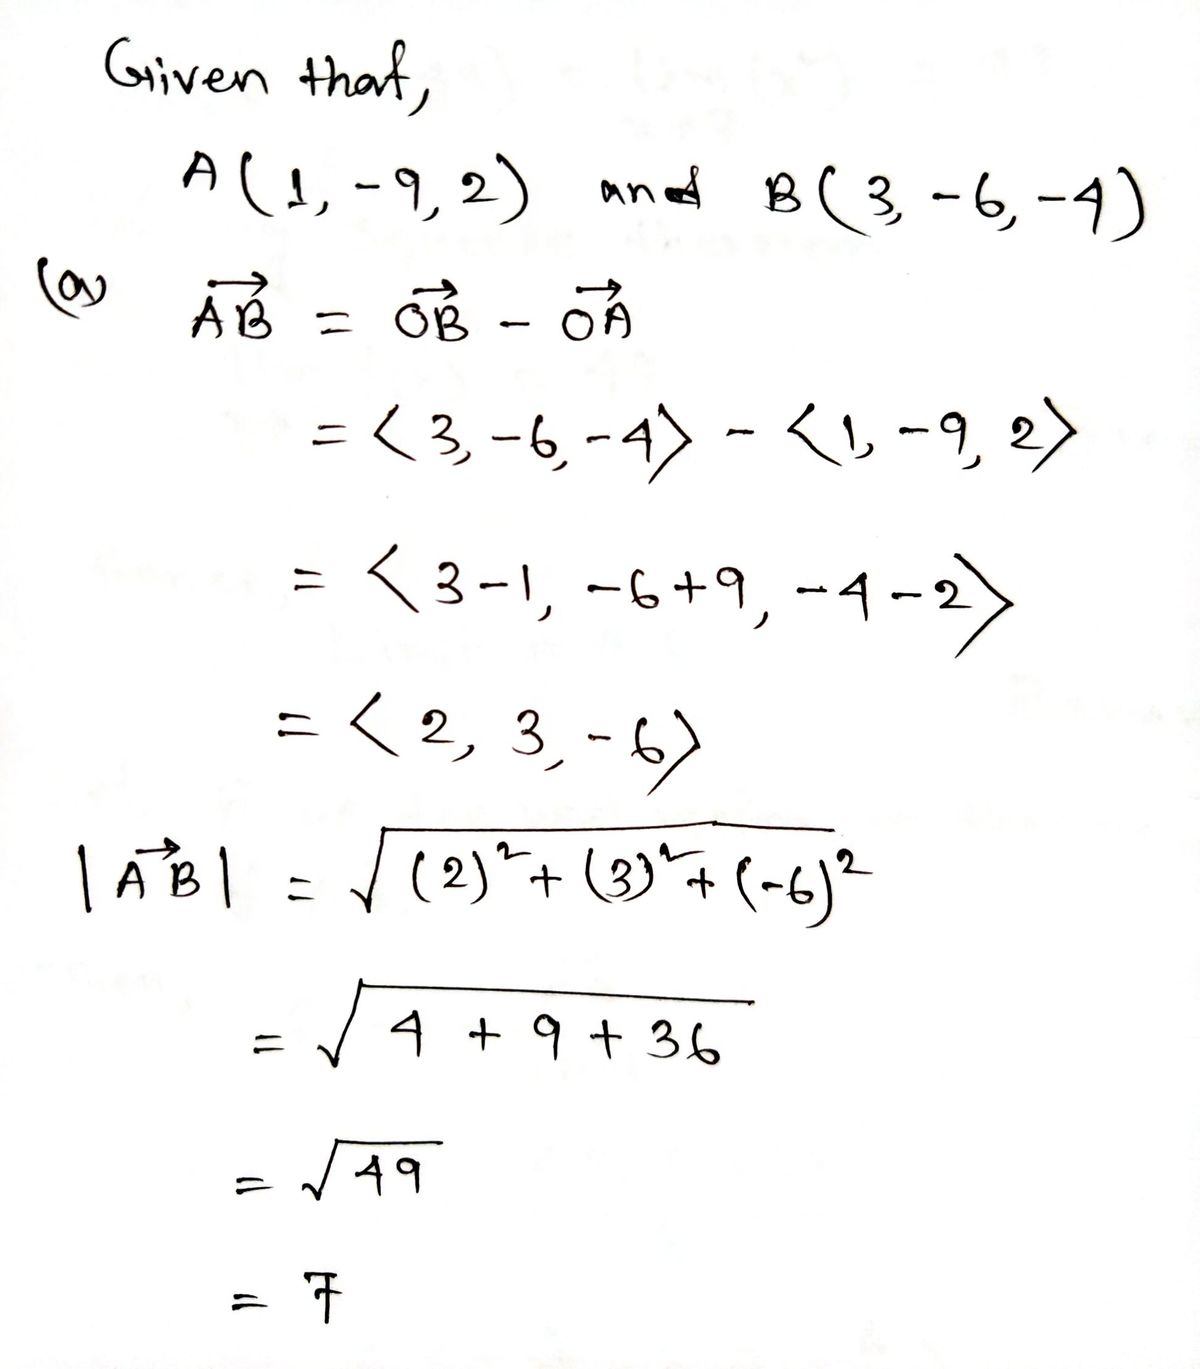 Given that,
A(1, -9, 2) and B(3, -6, -4)
(a) $\overrightarrow{AB} = \overrightarrow{OB} - \overrightarrow{OA}$
= ⟨3, -6, -4⟩ - ⟨1, -9, 2⟩
= ⟨3-1, -6+9, -4-2⟩
= ⟨2, 3, -6⟩
$|\overrightarrow{AB}| = \sqrt{(2)^2 + (3)^2 + (-6)^2}$
$= \sqrt{4 + 9 + 36}$
$= \sqrt{49}$
= 7